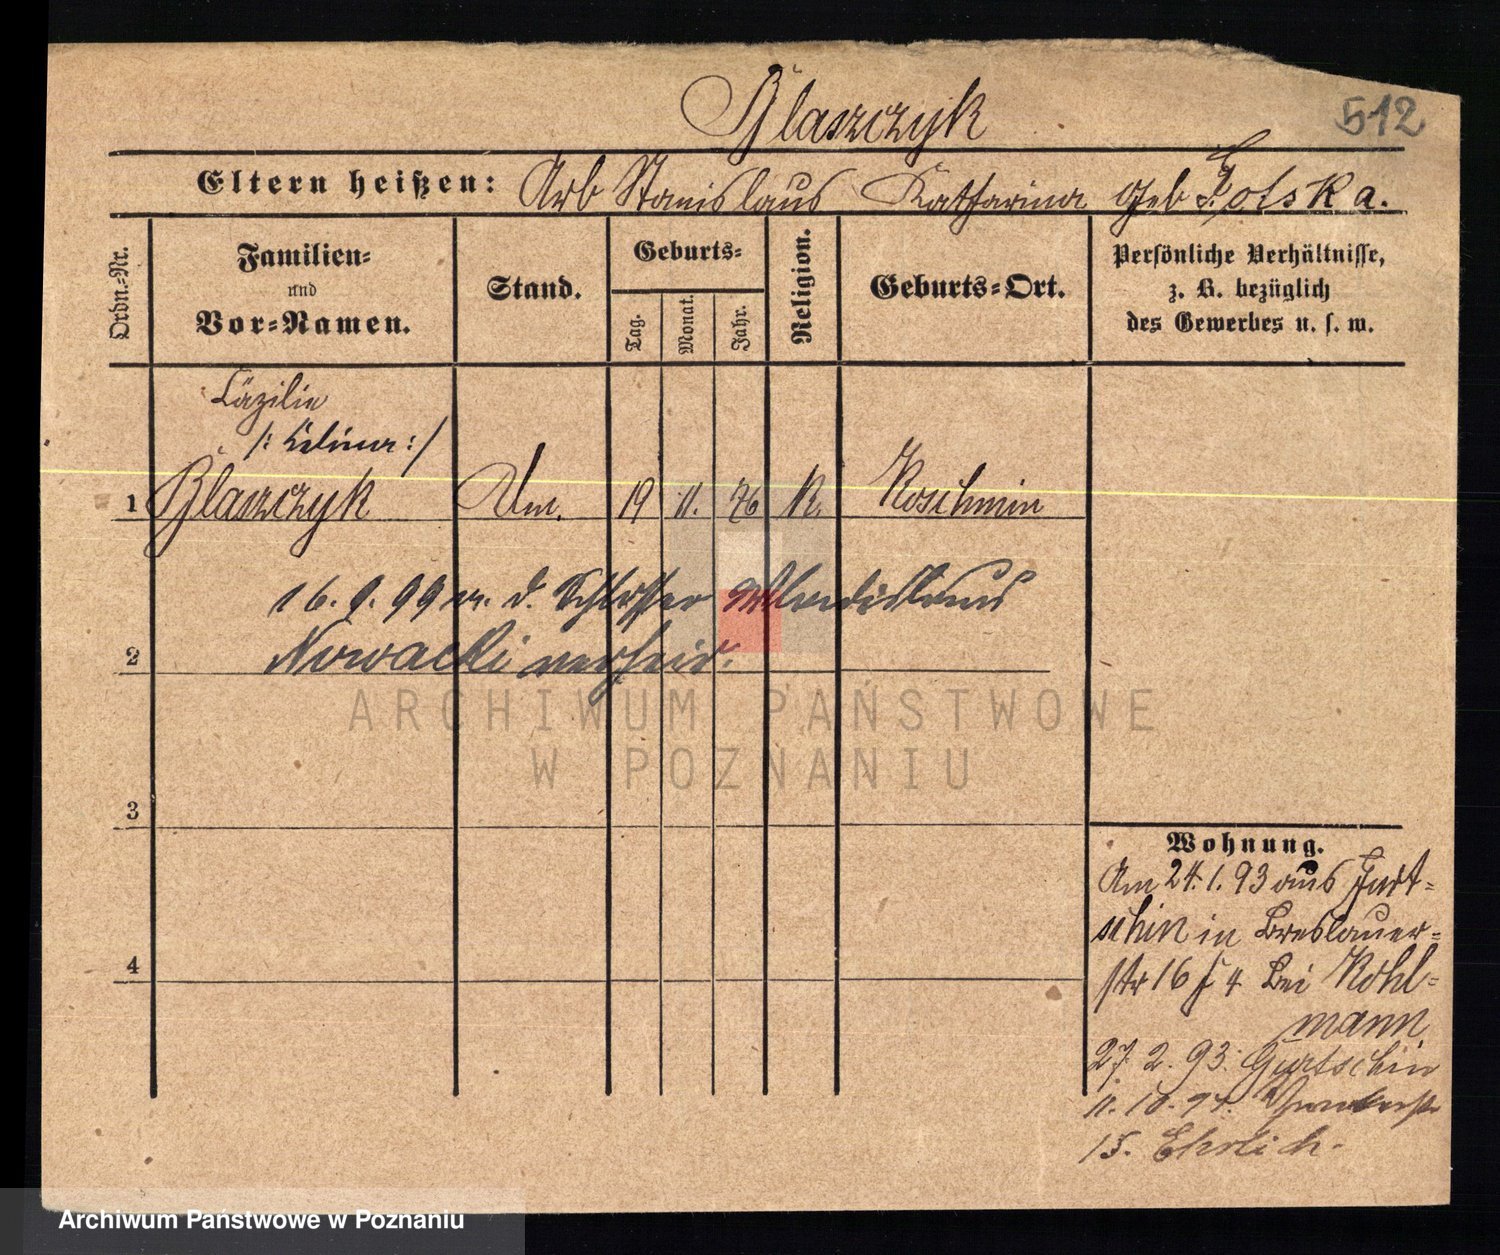 512
Blaszczyk
Eltern heißen: Arb Stanislaus Katharina geb
Ordn.-Nr.
Familien-
und
Vor-Namen.
Stand.
Geburts-
Tag.
Monat.
Jahr.
Religion.
Geburts-Ort.
Persönliche Verhältnisse,
z. B. bezüglich
des Gewerbes u. s. w.
Cäzilie
/: Celina :/
1 Blaszczyk Um. 19 11. 76 K. Koschmin
16. 9. 99 m. d. Schlosser Wladislaus
2 Nowacki verheir.
3
4
Wohnung.
Am 24.1.93 aus Gurt-
schin in Breslauer-
str 16 4 bei Kohl-
mann
27. 2. 93. Gurtschin
11. 10. 94.
15. Ehrlich.
ARCHIWUM PAŃSTWOWE
W POZNANIU
Archiwum Państwowe w Poznaniu